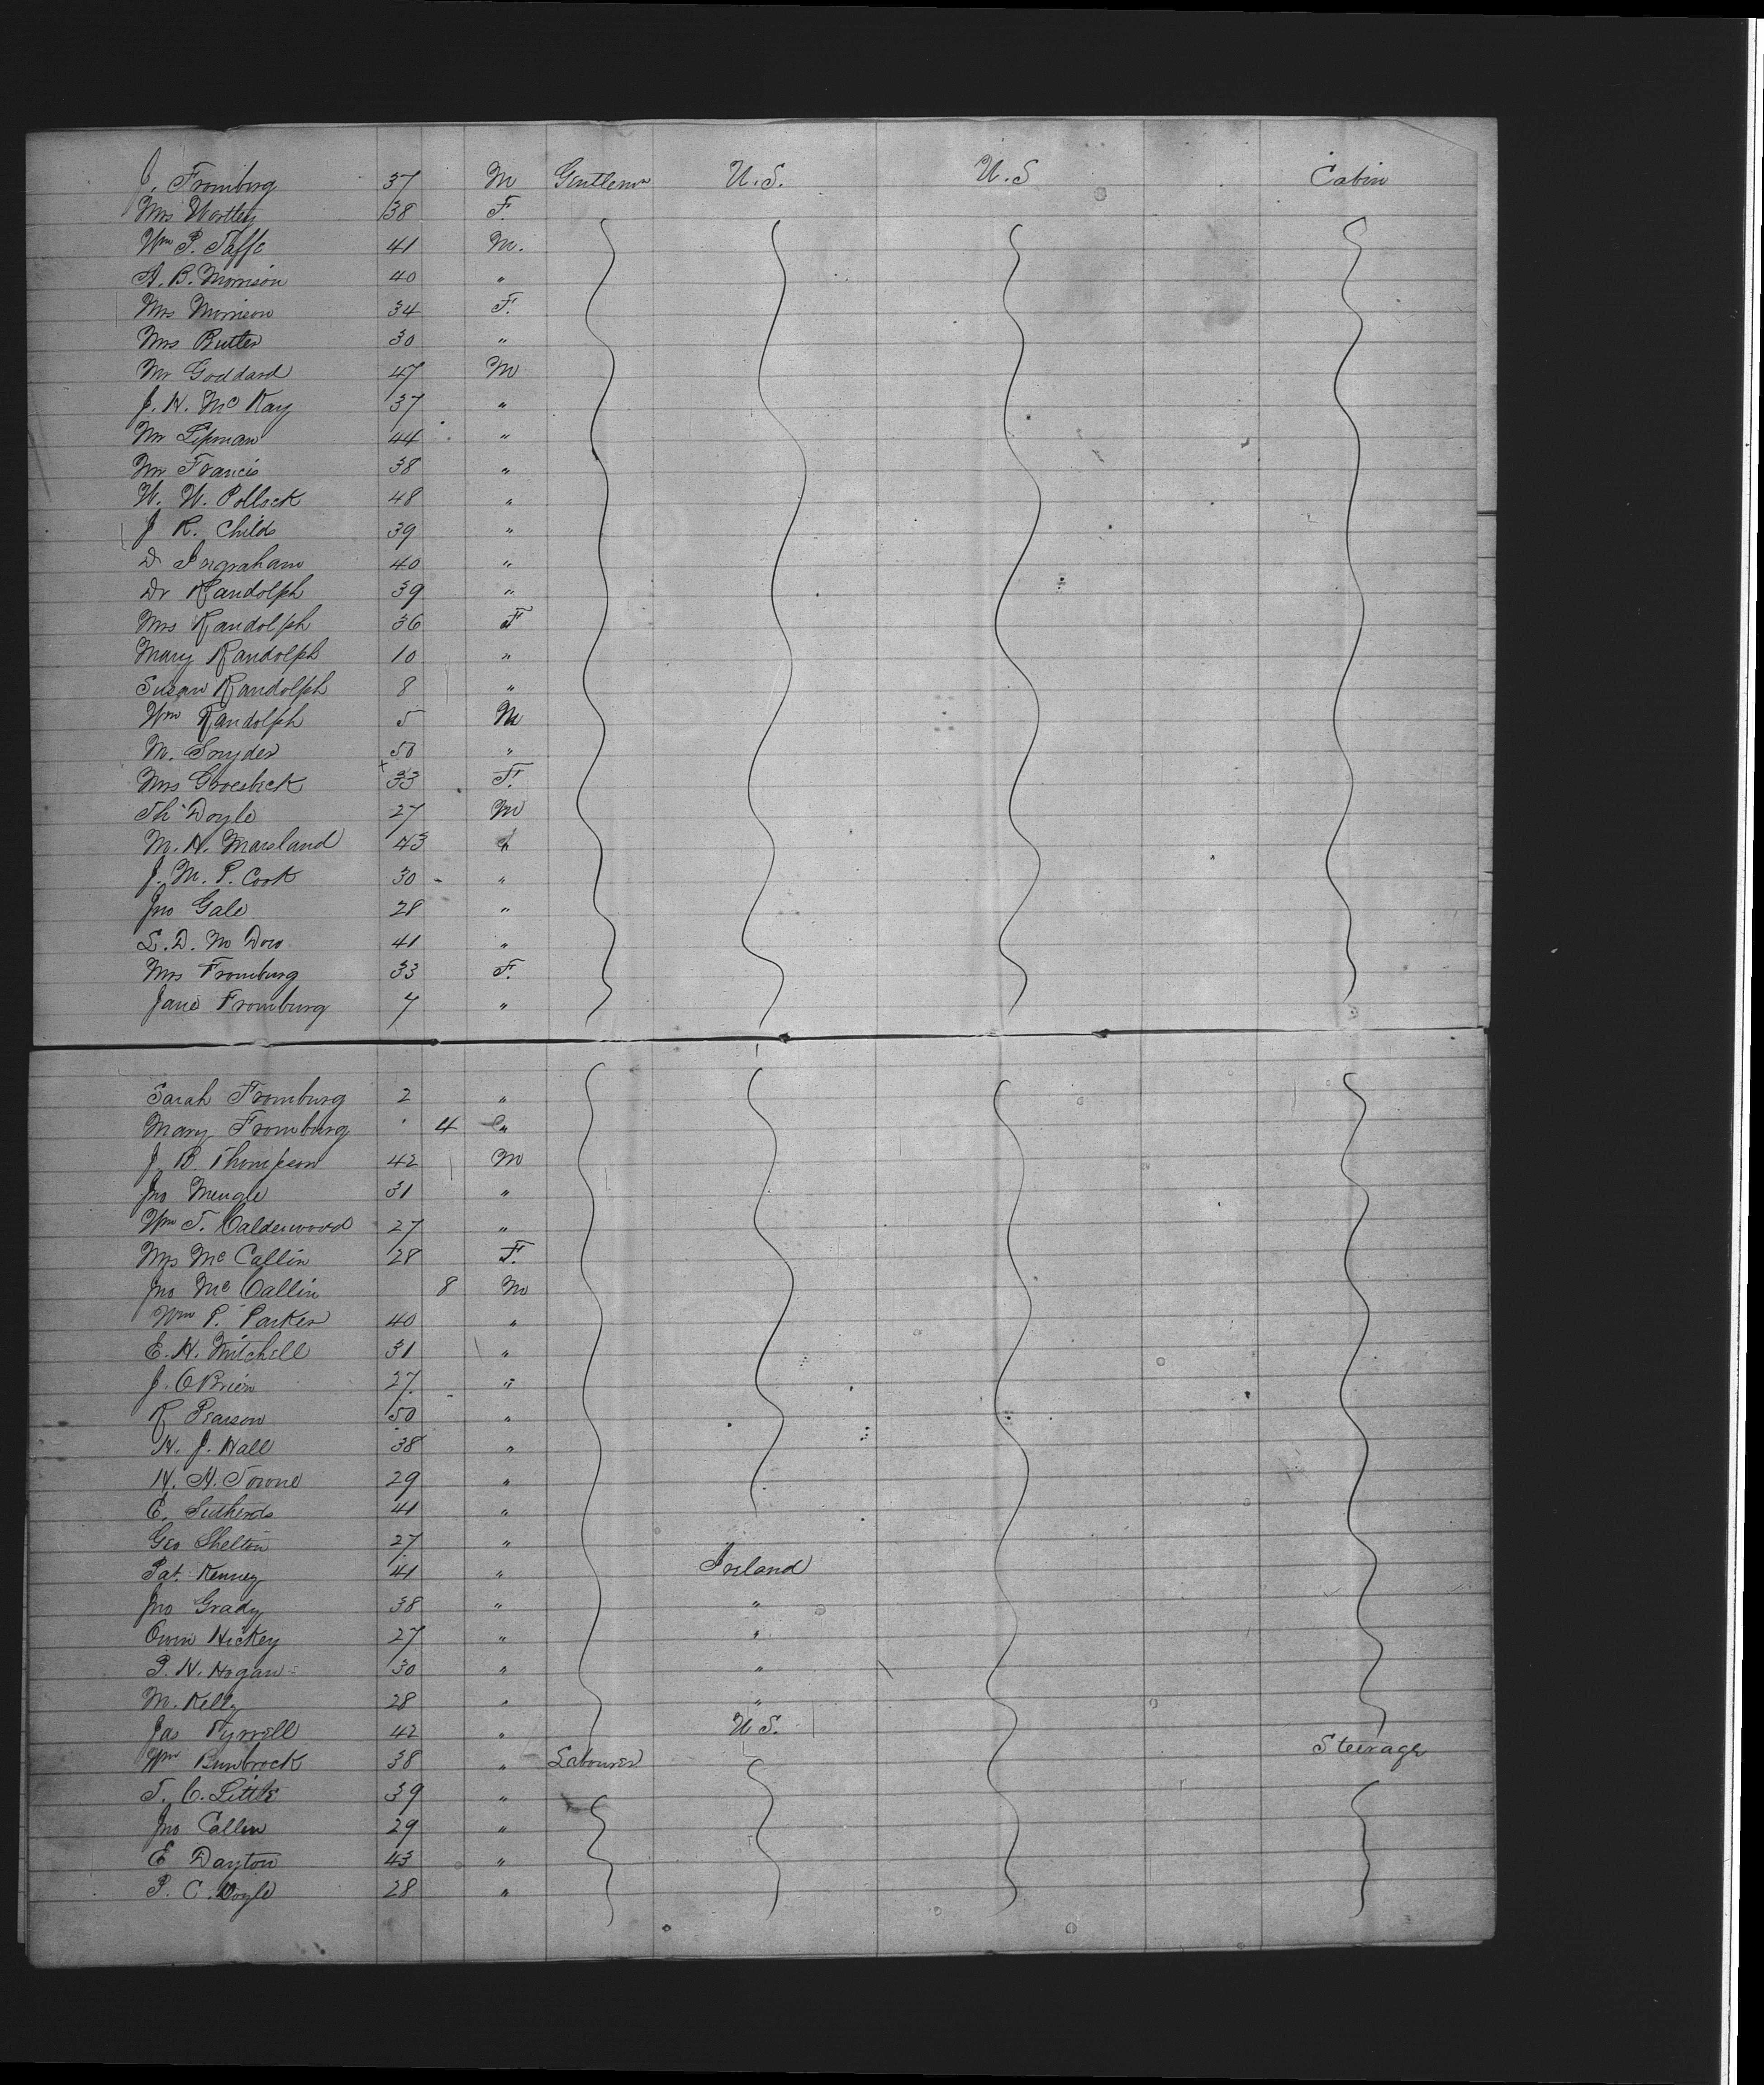 J. Fromburg 37 M Gentleman U.S. U.S Cabin
Mrs Wortley 38 F.
Wm P. Taffe 41 M.
A. B. Morrison 40 "
Mrs Morrison 34 F.
Mrs Butler 30 "
Mr Goddard 47 M
J. H. Mc Kay 37 "
Mr Lipman 44 "
Mr Francis 38 "
W. W. Pollock 48 "
J R. Childs 39 "
D Ingraham 40 "
Dr Randolph 39 "
Mrs Randolph 36 F
Mary Randolph 10 "
Susan Randolph 8 "
Wm Randolph 5 M
M. Snyder 50 "
Mrs Groesbeck 33 F.
Th Doyle 27 M
M. H. Marsland 43 "
J. M. P. Cook 30 "
Jno Gale 28 "
L. D. M Dow 41 "
Mrs Fromburg 33 F.
Jane Fromburg 7 "
Sarah Fromburg 2 "
Mary Fromburg 4 "
J. B. Thompson 42 M
Jno Mengle 31 "
Wm T. Calderwood 27 "
Mrs Mc Callin 28 F.
Jno Mc Callin 8 M
Wm P. Parker 40 "
E. H. Mitchell 31 "
J. O'Brien 27 "
R Pearson 50 "
H. J. Hall 38 "
H. A. Towne 29 "
E. 41 "
Geo Shelton 27 "
Pat. Kenney 41 " Ireland
Jno Grady 38 " "
Owen Hickey 27 " "
P. H. Hogan 30 " "
M. Kelly 28 " "
Jas Tyrrell 42 " U S.
Wm Bunbrock 38 " Labourer Steerage
T. C. Little 39 "
Jno Callen 29 "
E Dayton 43 "
P. C. Doyle 28 "